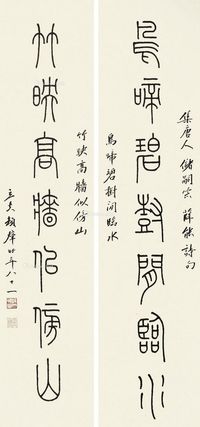 集唐人儲嗣宗薛能詩句
鳥啼碧樹閒臨水
鳥啼碧樹閒臨水
竹映高牆似傍山
竹映高牆似傍山
年八十一